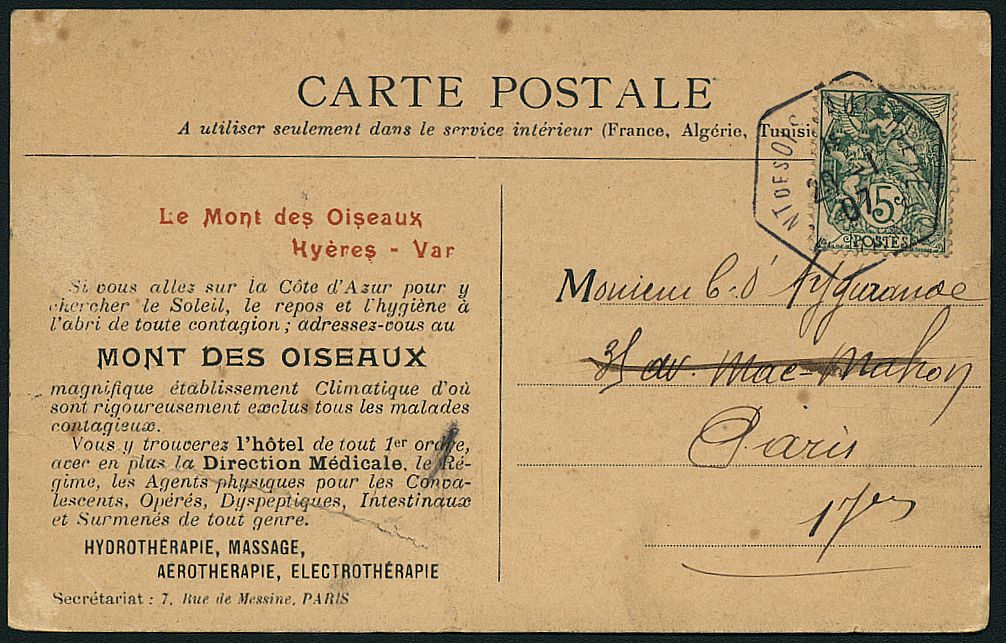 CARTE POSTALE
A utiliser seulement dans le service intérieur (France, Algérie, Tunisie
NT DES OIS
29 -1
07
5c
POSTES
Le Mont des Oiseaux
Hyères - Var
Si vous allez sur la Côte d'Azur pour y
chercher le Soleil, le repos et l'hygiène à
l'abri de toute contagion ; adressez-vous au
MONT DES OISEAUX
magnifique établissement Climatique d'où
sont rigoureusement exclus tous les malades
contagieux.
Vous y trouverez l'hôtel de tout 1er ordre,
avec en plus la Direction Médicale, le Ré-
gime, les Agents physiques pour les Conva-
lescents, Opérés, Dyspeptiques, Intestinaux
et Surmenés de tout genre.
HYDROTHERAPIE, MASSAGE,
AEROTHERAPIE, ELECTROTHÉRAPIE
Secrétariat : 7, Rue de Messine, PARIS
Monsieur C. d'Aygurande
av. Mac-Mahon
Paris
17es